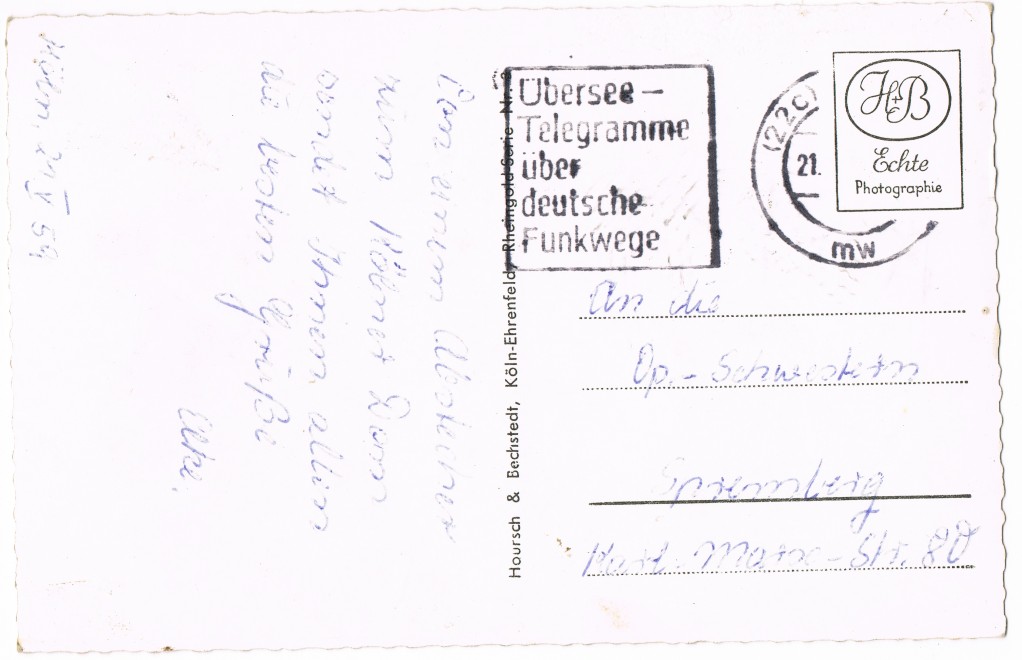 Köln, 21. V 59
Von einem Abstecher
zum Kölner Dom
sendet Ihnen allen
die besten Grüße
Hoursch & Bechstedt, Köln-Ehrenfeld, Rheingold-Serie Nr.
Übersee-
Telegramme
über
deutsche
Funkwege
(22c)
21.
mw
H+B
Echte
Photographie
An die
Op.-Schwestern
Spremberg
Karl-Marx-Str. 80